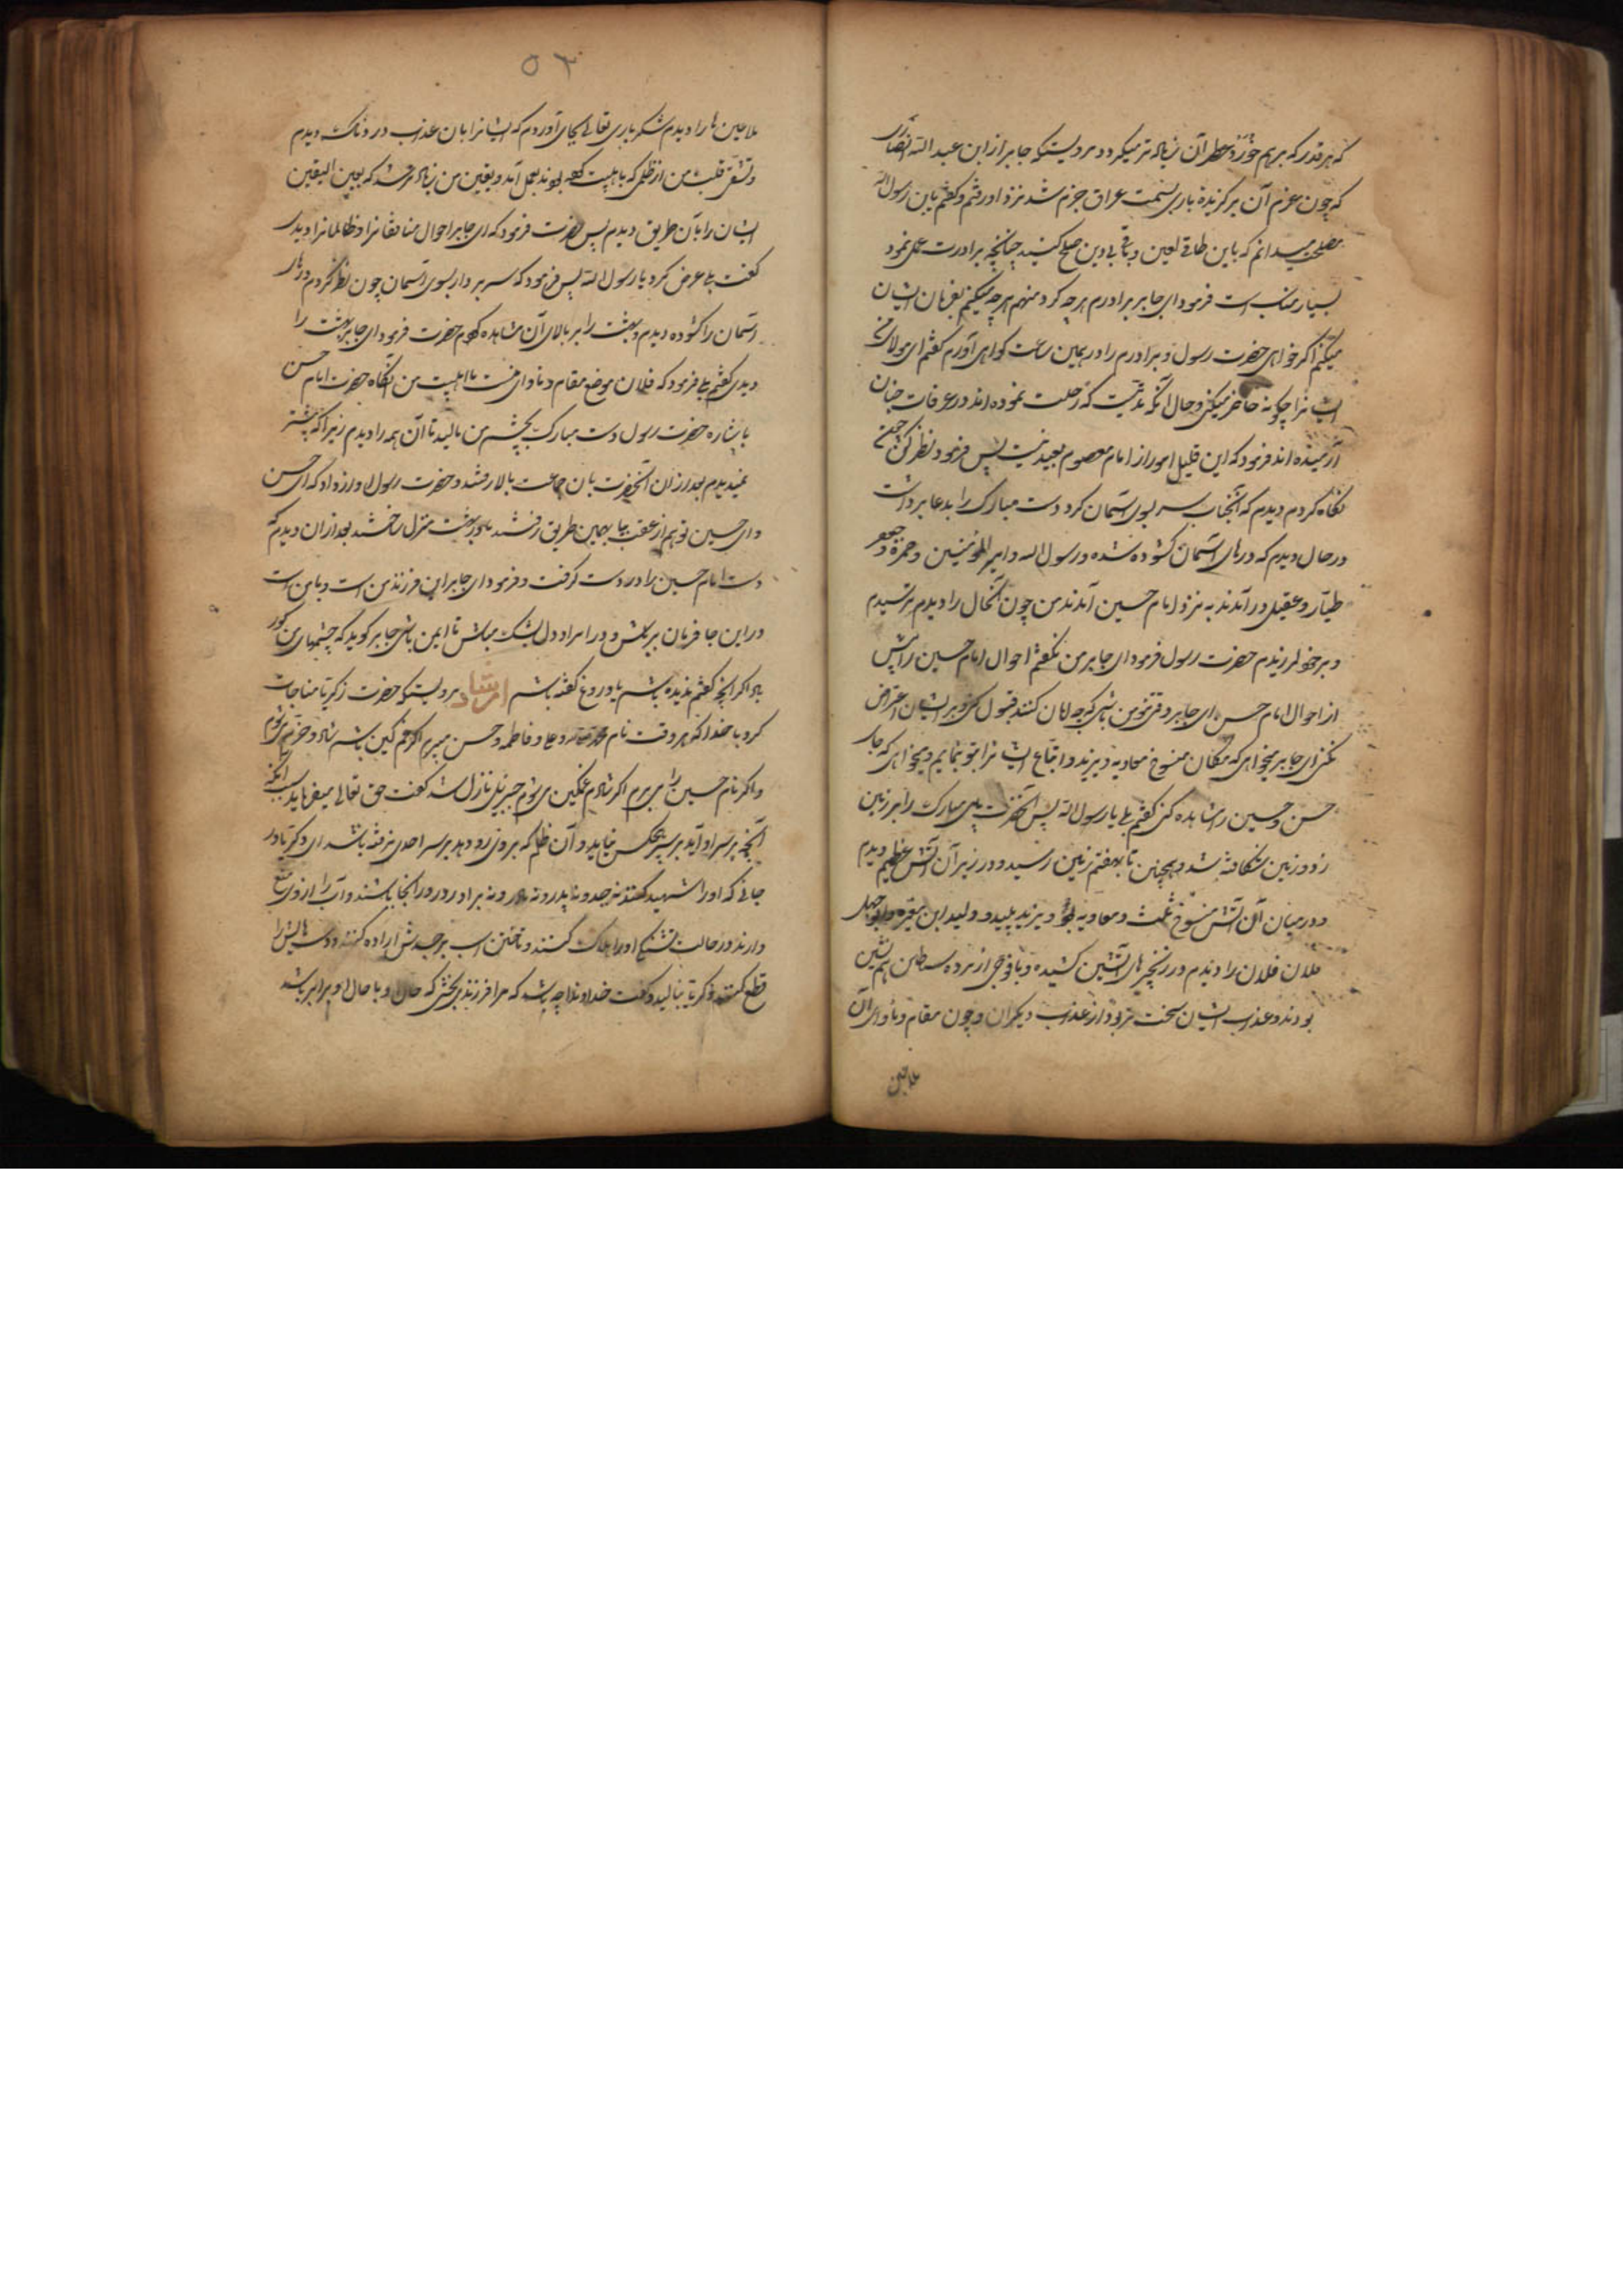 که هر قدر که بر هم خورد عطر آن زیاده تر میگردد مرویستکه جابر ابن عبد الله انصاری
که چون عزم آن برگزیده باری بسمت عراق جزم شد نزد او رفتم و گفتم یابن رسول الله
مصلحت میدانم که باین طاقی لعین و باقی بی دین صلح کنید چنانچه برادرت عمل نمود
بسیار مناسب است فرمود ای جابر برادرم هر چه کرد و منهم هر چه میکنم بفرمان ایشان
میکنم اگر خواهی حضرت رسول و برادرم را در همین ساعت گواهی آورم گفتم ای مولای
ایشانرا چگونه حاضر میکنی و حال آنکه مدتیست که رحلت نموده اند در غرفات جنان
آرمیده اند فرمود که این قلیل امور از امام معصوم بعید نیست پس فرمود نظر کن
نگاه کردم دیدم که آنجناب سر بسوی آسمان کرد و دست مبارک را بدعا برداشت
در حال دیدم که درهای آسمان گشوده شده و رسول الله و امیر المومنین و حمزه و جعفر
طیار و عقیل در آمدند به نزد امام حسین آمدند من چون آنحال را دیدم ترسیدم
و بر خود لرزیدم حضرت رسول فرمود ای جابر من نگفتم احوال امام حسین را پیش
از احوال امام حسن ای جابر وقتی مومن باشی که هر چه امامان کنند قبول کنی و بر ایشان اعتراض
نکنی ای جابر میخواهی که مکان منسوخ معاویه و یزید و اتباع ایشانرا بتو بنمایم و میخواهی که جای
حسن و حسین را مشاهده کنی گفتم بلی یا رسول الله پس آنحضرت پای مبارک را بر زمین
زد و زمین شکافته شد و همچنین تا بهفتم زمین رسید و در زیر آن آتش عظیم دیدم
و در میان آن آتش منسوخ ثلث و معاویه و یزید پلید و ولید ابن مغیره و ابو جهل
فلان فلان را دیدم در زنجیر های آتشین کشیده و با فوجی از مرده شیاطین هم نشین
بودند و عذاب ایشان سخت تر بود از عذاب دیگران و چون مقام و ماوای آن
ملاعین
۵۳
ملاعین ها را دیدم شکر باری تعالی بجای آوردم که ایشانرا بان عذاب دردناک دیدم
و تشفی قلب من از ظلمی که باهلبیت کرده بودند بعمل آمد و یقین من زیاده تر شد که بعین الیقین
ایشان را بآن طریق دیدم پس حضرت فرمود که ای جابر احوال منافقانرا و ظالمانرا دیدی
گفت بلی عرض کرد یا رسول الله پس فرمود که سر بردار بسوی آسمان چون نظر کردم درهای
آسمان را گشوده دیدم و بهشت را بر بالای آن مشاهده کردم حضرت فرمود ای جابر بهشت را
دیدی گفتم بلی فرمود که فلان موضع مقام و ماوای منست با اهلبیت من آنگاه حضرت امام حسن
باشاره حضرت رسول دست مبارک بچشم من مالید تا آن همه را دیدم زیرا که پیشتر
نمیدیدم بعد از آن آنحضرت با ن جماعت بالا رفتند و حضرت رسول آواز داد که ای حسن
و ای حسین تو هم از عقب بیا بهمین طریق رفتند تا در بهشت منزل ساختند بعد از آن دیدم که
دست امام حسین را در دست گرفت و فرمود ای جابر این فرزند من است و با من است
در این جا فرمان بر باش و در امر او دل بشک مباش تا ایمن باشی جابر گوید که چشمهای من کور
باد اگر آنچه گفتم ندیده باشم یا دروغ گفته باشم ارشاد مرویستکه حضرت زکریا مناجات
کرد با خدا که هر وقت نام محمد و علی و فاطمه و حسن میبرم اگر غمگین باشم شاد و خرم میشوم
و اگر نام حسین را می برم اگر شادم غمگین می شوم جبرئیل نازل شد گفت حق تعالی میفرماید سبب آنکه
آنچه بر سر او آید بر سر هیچکس نیاید و آن ظلم که بر وی رود بر سر احدی نرفته باشد ای زکریا در
جائی که او را شهید کنند نه جد و نه پدر و نه مادر و نه برادر در آنجا باشند و آب را از وی منع
دارند و در حالت تشنگی او را هلاک کنند و تاختن اسب بر جسدش اراده کنند و دستهایش را
قطع کنند زکریا بنالید و گفت خداوندا چه باشد که مرا فرزندی بخشی که حال او با حال او برابر باشد